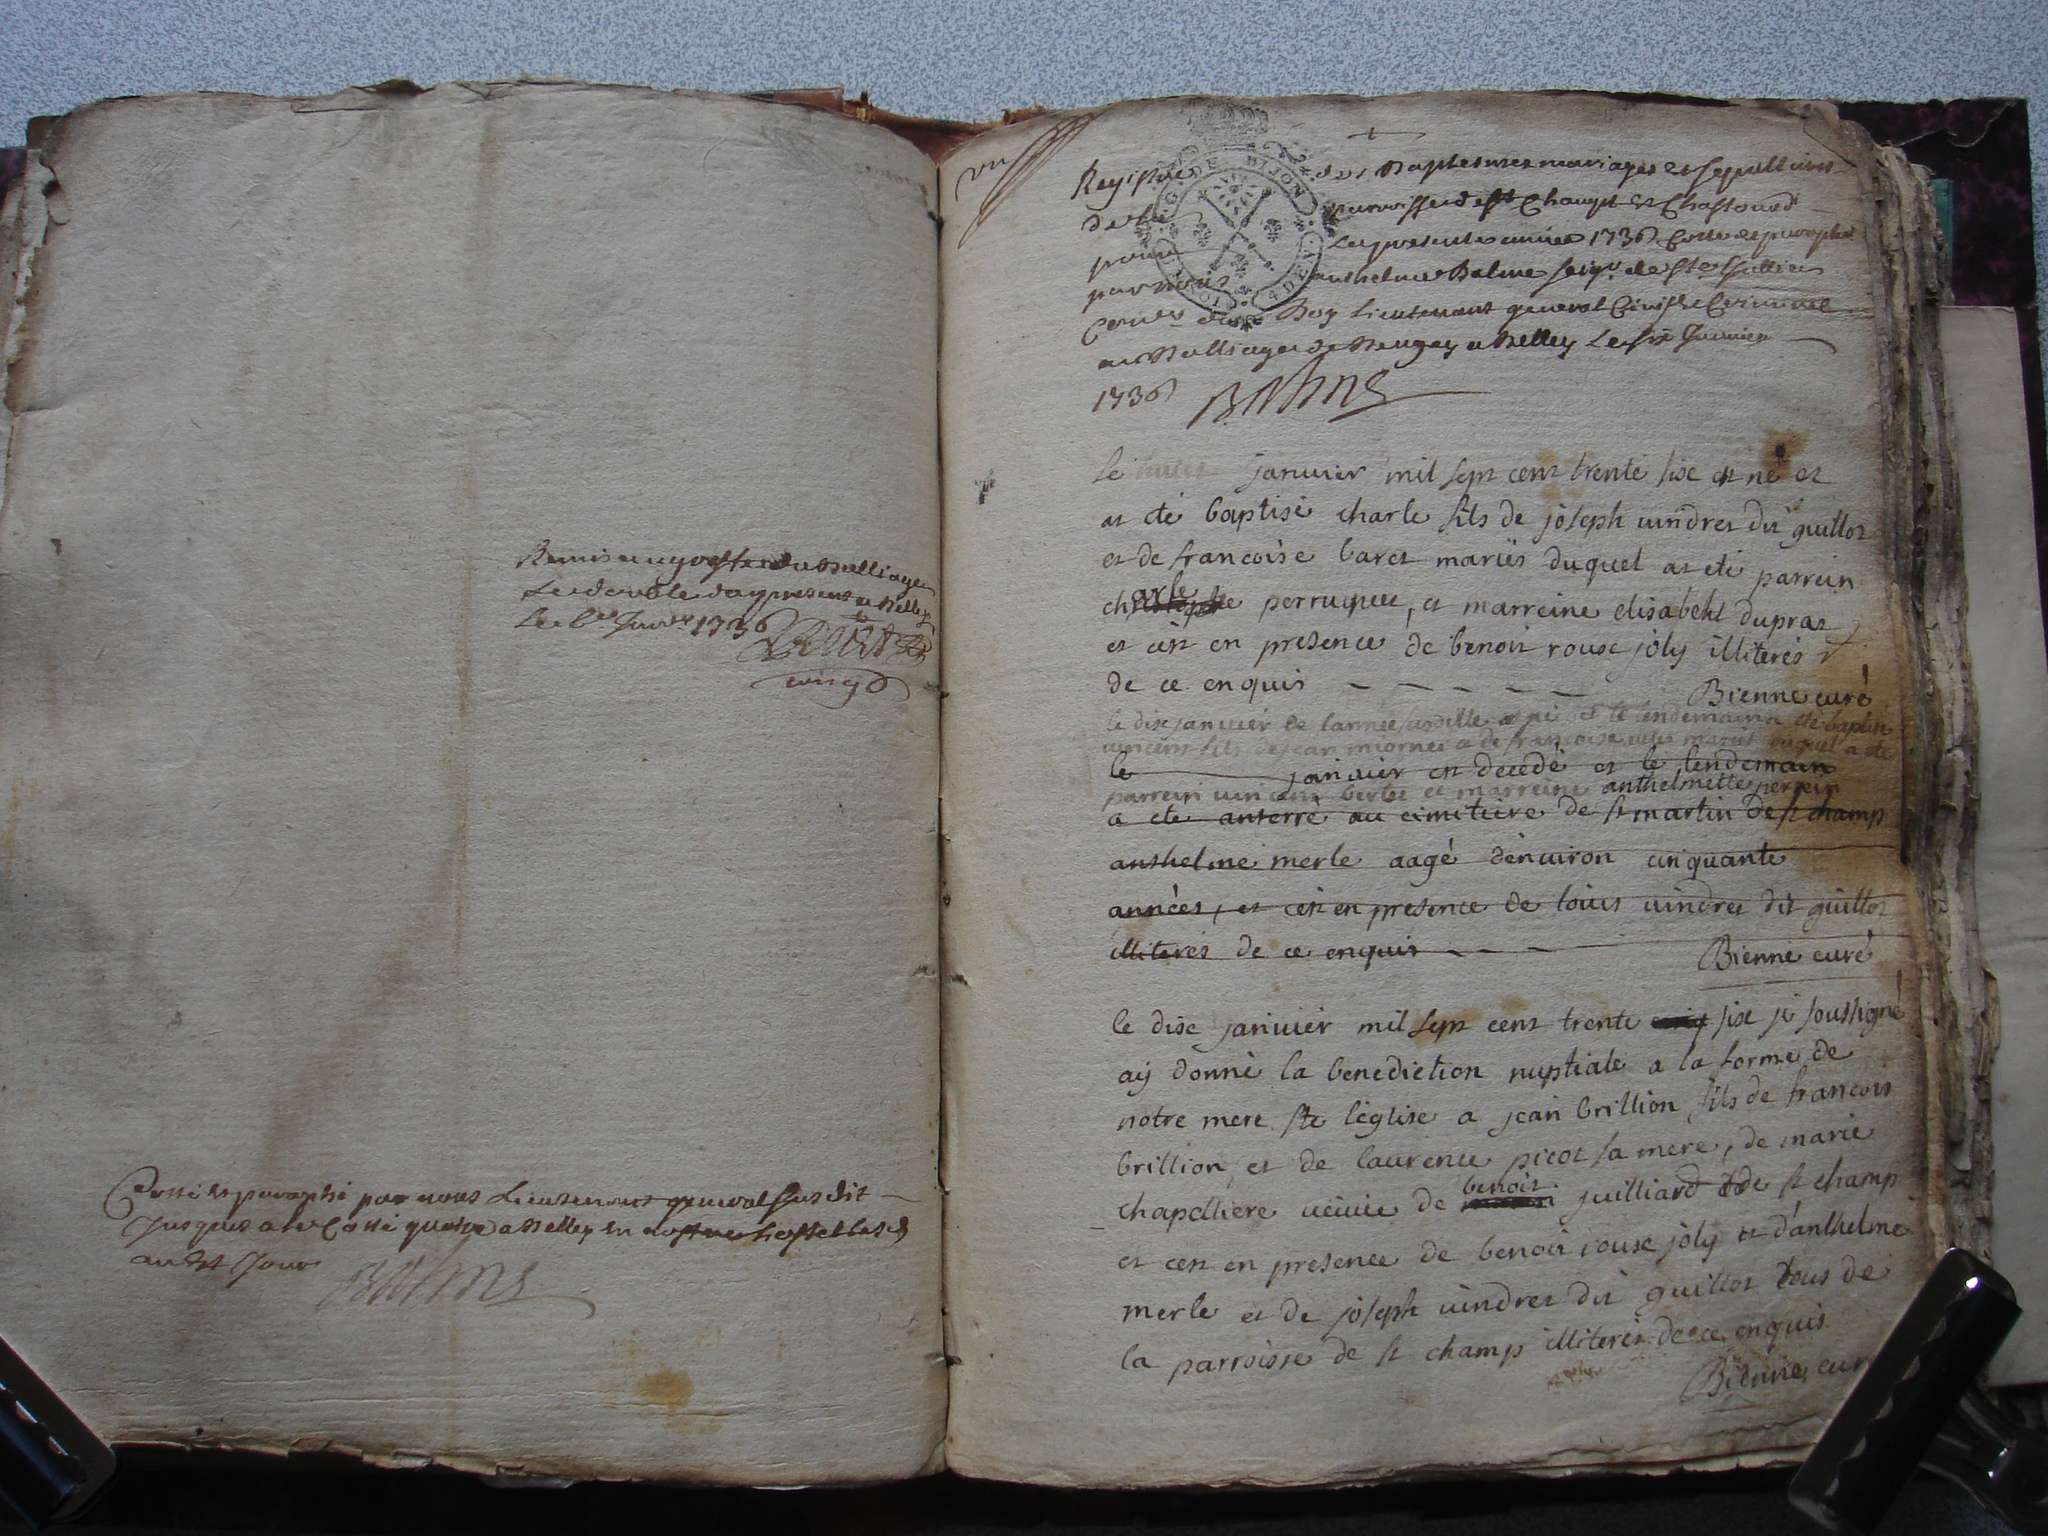 Remis au greffe du Balliage
Le double du present a Belley
Le Janv. 1736
Cotté et paraphé par nous Lieutenant general susdit
Jusques a la Cotte quatre a Belley en nostre hostel lesd.
an et Jour
Balme
vu
Registre des Baptesmes mariages et sepultures
de la parroisse de st Champt et Chastonod
pour La presente année 1736 Cotté et paraphé
par nous anthelme Balme seigr. de ste Jullie
Conser. du Roy Lieutenant general Civil et Criminel
au Balliage de Beugey a Belley Le six Janvier
1736 Balme
le huict janvier mil sept cent trente sise est né et
at eté baptisé charle fils de joseph vindret dit guillot
et de francoise baret mariës duquel at eté parrein
charle perruquet, et marreine elisabeht duprat
et cest en presence de benoit rouse joly illiterés
de ce enquis - - - - - Bienne curé
le dise janvier de lannée susditte est né et le lendemain eté baptisé
vincent fils de jean miornet et de francoise mariés duquel a eté
le janvier est decedé et le lendemain
parrein vincent berlie et marreine anthelmette perrein
a eté anterré au cimitiere de st martin de st champ
anthelme merle aagé denviron cinquante
années, et cest en presence de louis vindret dit guillot
illiterés de ce enquis - - - Bienne curé
le dise janvier mil sept cent trente cinq sise je soussigné
aÿ donné la benediction nuptiale a la forme de
notre mere ste leglise a jean brillion fils de francois
brillion et de laurence picot sa mere, de marie
chapelliere veuve de benoit juilliard de st champ
et cest en presence de benoit rouse joly et d'anthelme
merle et de joseph vindret dit guillot tous de
la parroisse de st champ illiterés de ce enquis
Bienne curé